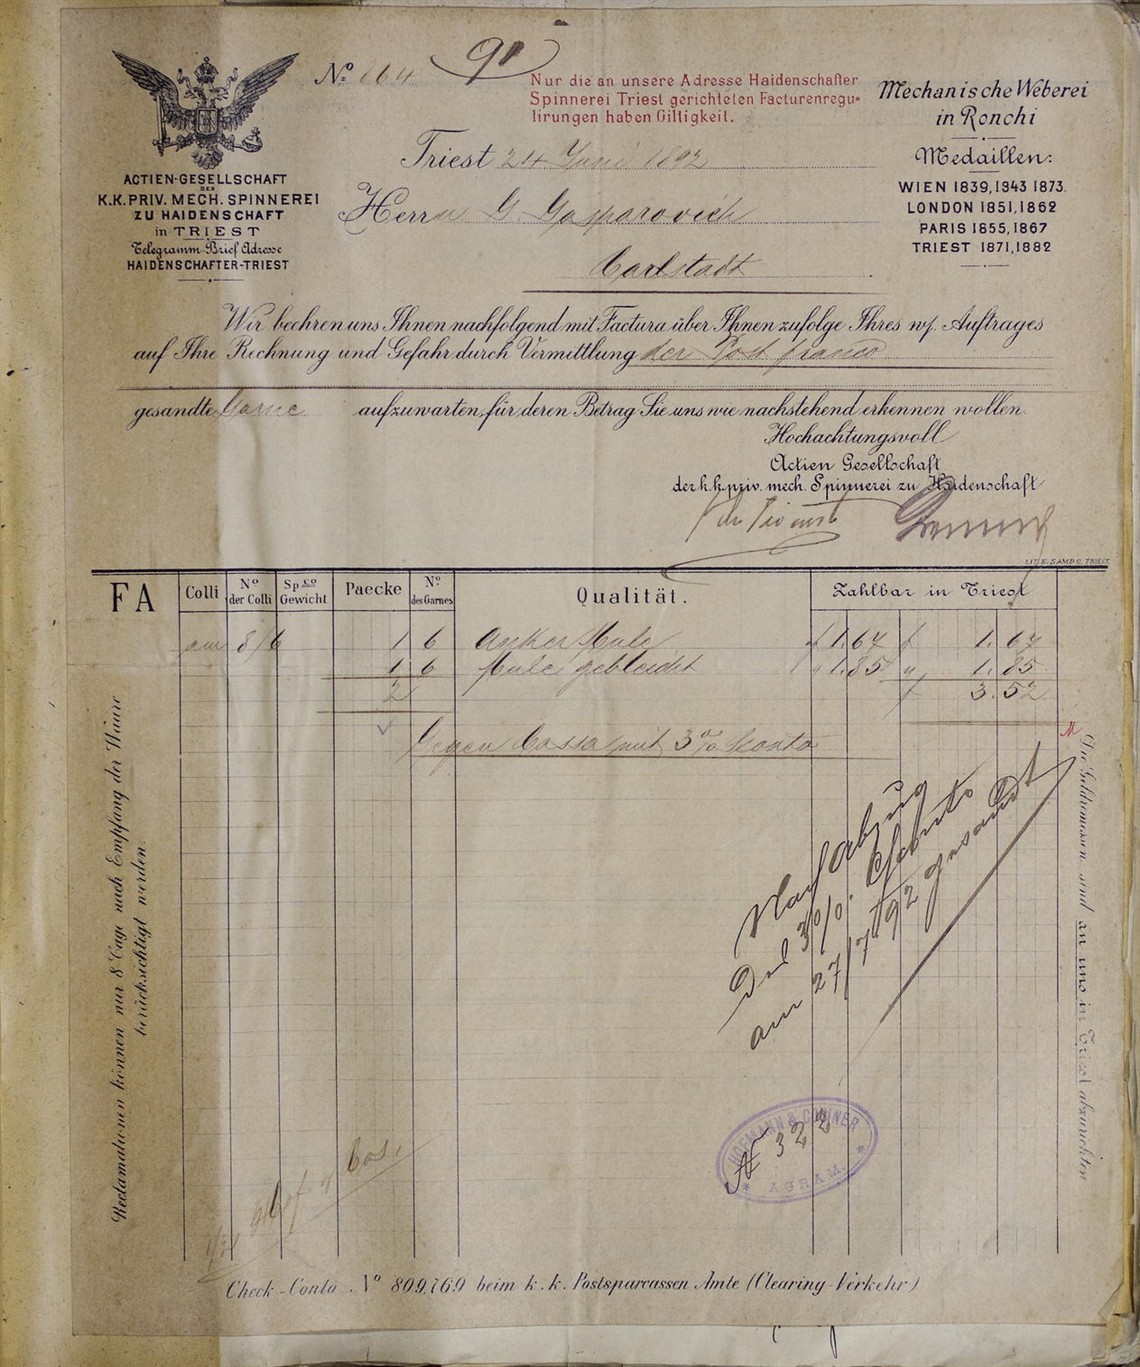 No 664
90
Nur die an unsere Adresse Haidenschafter
Spinnerei Triest gerichteten Facturenregu-
lirungen haben Giltigkeit.
Mechanische Weberei
in Ronchi
Medaillen:
WIEN 1839, 1943 1873.
LONDON 1851, 1862
PARIS 1855, 1867
TRIEST 1871, 1882
ACTIEN-GESELLSCHAFT
DER
K.K. PRIV. MECH. SPINNEREI
ZU HAIDENSCHAFT
in TRIEST
Telegramm-Brief Adresse
HAIDENSCHAFTER-TRIEST
Triest 24 Juni 1892
Herrn G Gasparovich
Carlstadt
Wir beehren uns Ihnen nachfolgend mit Factura über Ihnen zufolge Ihres w/. Auftrages
auf Ihre Rechnung und Gefahr durch Vermittlung der Post franco
gesandte Garne aufzuwarten, für deren Betrag Sie uns wie nachstehend erkennen wollen.
Hochachtungsvoll
Actien Gesellschaft
der k.k. priv. mech. Spinnerei zu Haidenschaft
LIT. E. SAMBO, TRIEST
FA
Colli
No der Colli
Spco Gewicht
Paecke
No des Garnes
Qualität.
Zahlbar in Triest
am 8/6 1 6 Anker Mule f 1.67 f 1.67
1 6 Mule gebleicht " 1.85 " 1.85
2 f 3.52
Gegen Cassa mit 3% Sconto
Nach Abzug
3%. Sconto
am 27/7 92 gesandt
HOFMANN & GMINER
N 322
AGRAM
Reclamationen können nur 8 Tage nach Empfang der Waare
berücksichtigt werden.
Die Geldremessen sind an uns in Triest abzurichten
Check-Conto No 809,769 beim k.k. Postsparcassen Amte (Clearing-Verkehr)